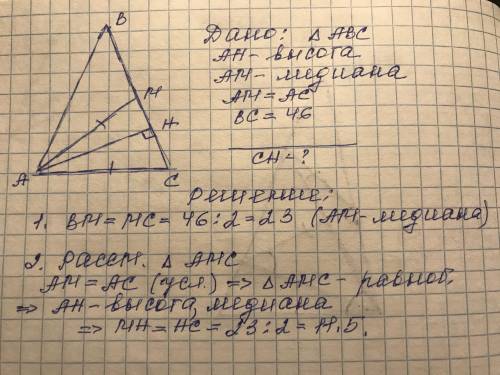 B
Дано: △ABC
AH - высота
AM - медиана
AM = AC
BC = 46
CH - ?
M
H
A
C
Решение:
1. BM = MC = 46 : 2 = 23 (AM - медиана)
2. Рассм. △ AMC
AM = AC (усл.) => △AMC - равноб.
=> AH - высота, медиана
=> MH = HC = 23 : 2 = 11.5.